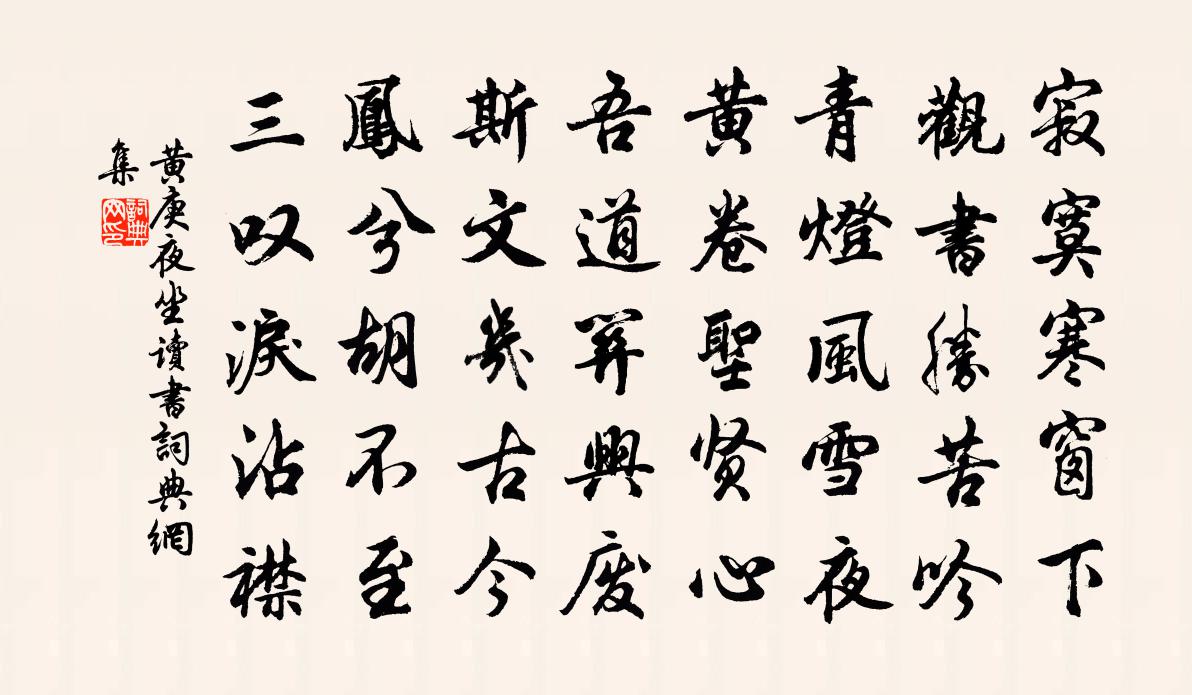 寂寞寒窗下
觀書勝苦吟
青燈風雪夜
黃卷聖贤心
吾道關興废
斯文幾古今
鳳兮胡不至
三叹淚沾襟
黃庚夜坐讀書詞典網
集
詞典
网印